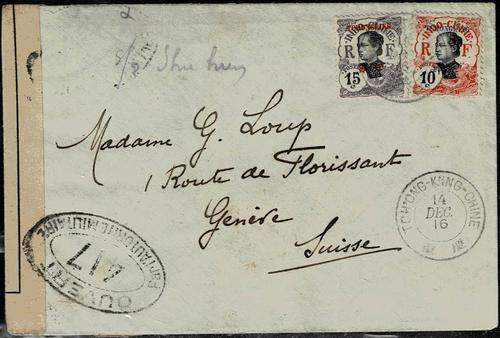 INDO-CHINE
R F
15 c
INDO-CHINE
R F
10 c
Madame G. Loup
1 Route de Florissant
Genève
Suisse
TCH'ONG-K'ING-CHINE
14
DEC.
16
OUVERT
par l'AUTORITÉ MILITAIRE
417